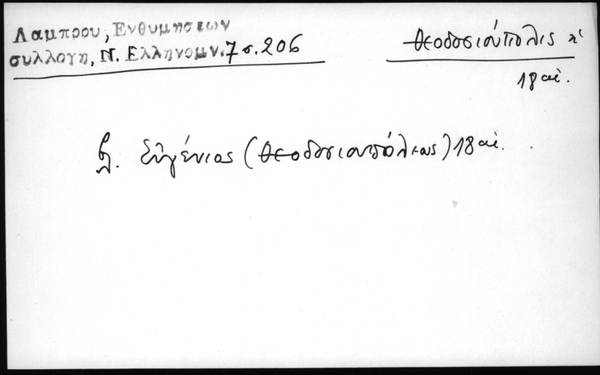 Λαμπρου, Ενθυμησεων
συλλογη, Ν. Ελληνομν. 7 σ. 206
Θεοδοσιούπολις
18 αἰ.
βλ. Εὐγένιος (Θεοδοσιουπόλεως) 18 αἰ.